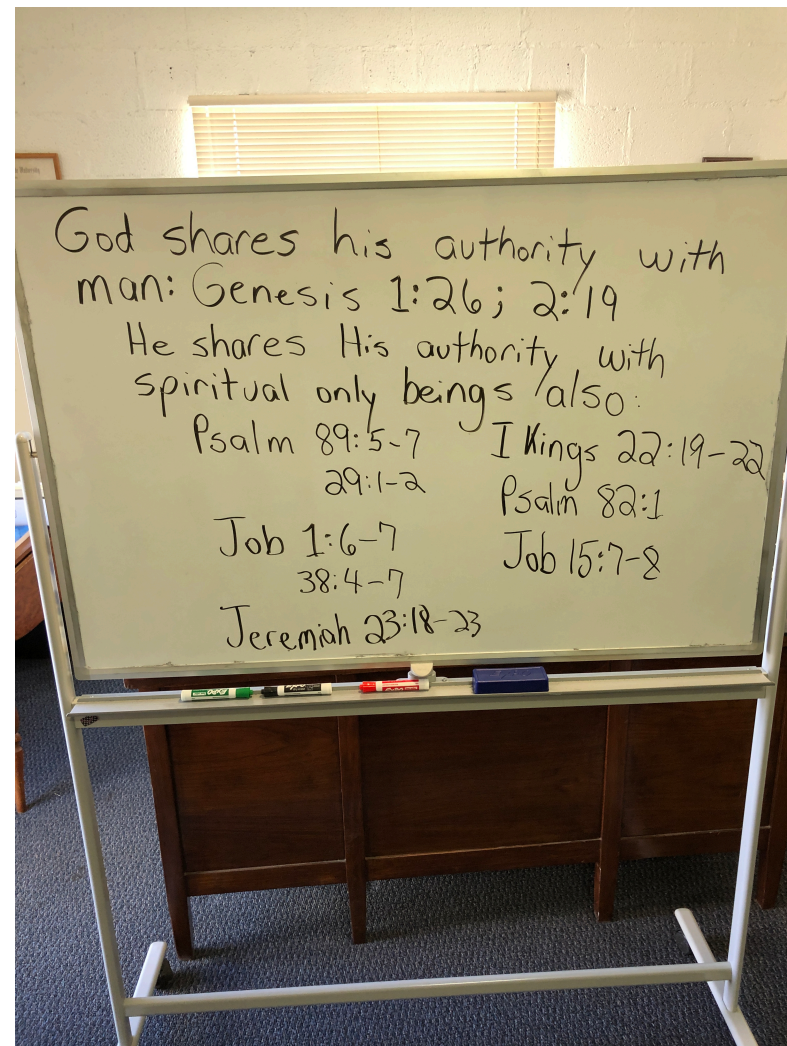 God shares his authority with
man: Genesis 1:26; 2:19
He shares His authority with
spiritual only beings also:
Psalm 89:5-7
29:1-2
Job 1:6-7
38:4-7
Jeremiah 23:18-23
I Kings 22:19-22
Psalm 82:1
Job 15:7-8
EXPO